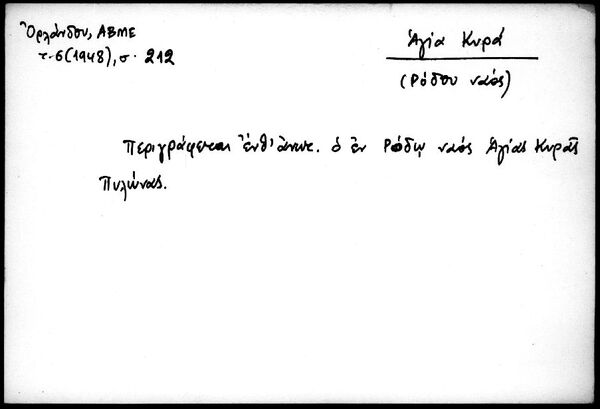 Ὀρλάνδου, ΑΒΜΕ
τ. 6 (1948), σ. 212
Ἁγία Κυρά
(Ρόδου ναός)
Περιγράφεται ἐνθ' ἀνωτ. ὁ ἐν Ρόδῳ ναός Ἁγίας Κυρᾶς
Πυλώνας.